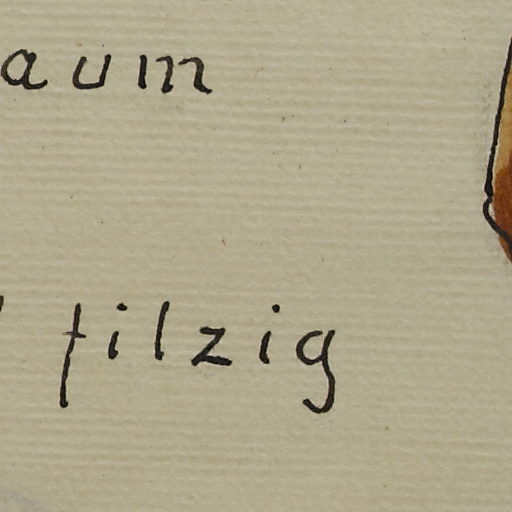 aum
filzig